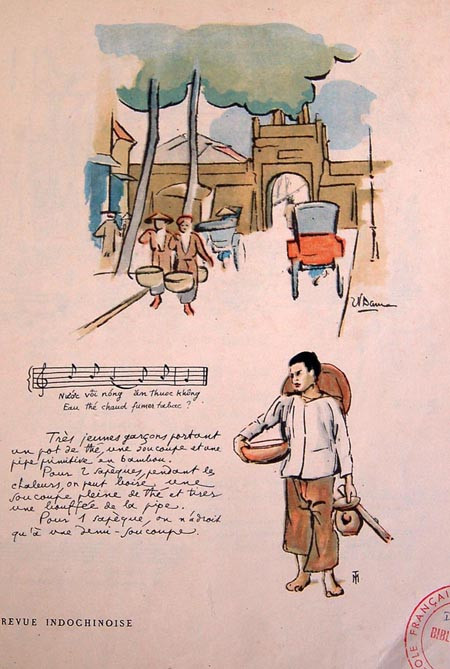 Nước vối nóng ăn thuoc không
Eau thé chaud fumer tabac ?
Très jeunes garçons portant
un pot de thé, une soucoupe et une
pipe primitive en bambou.
Pour 2 sapèques, pendant les
chaleurs, on peut boire une
soucoupe pleine de thé et tirer
une bouffée de la pipe.
Pour 1 sapèque, on n'a droit
qu'à une demi-soucoupe.
REVUE INDOCHINOISE
OLE FRANÇAI
BIBL